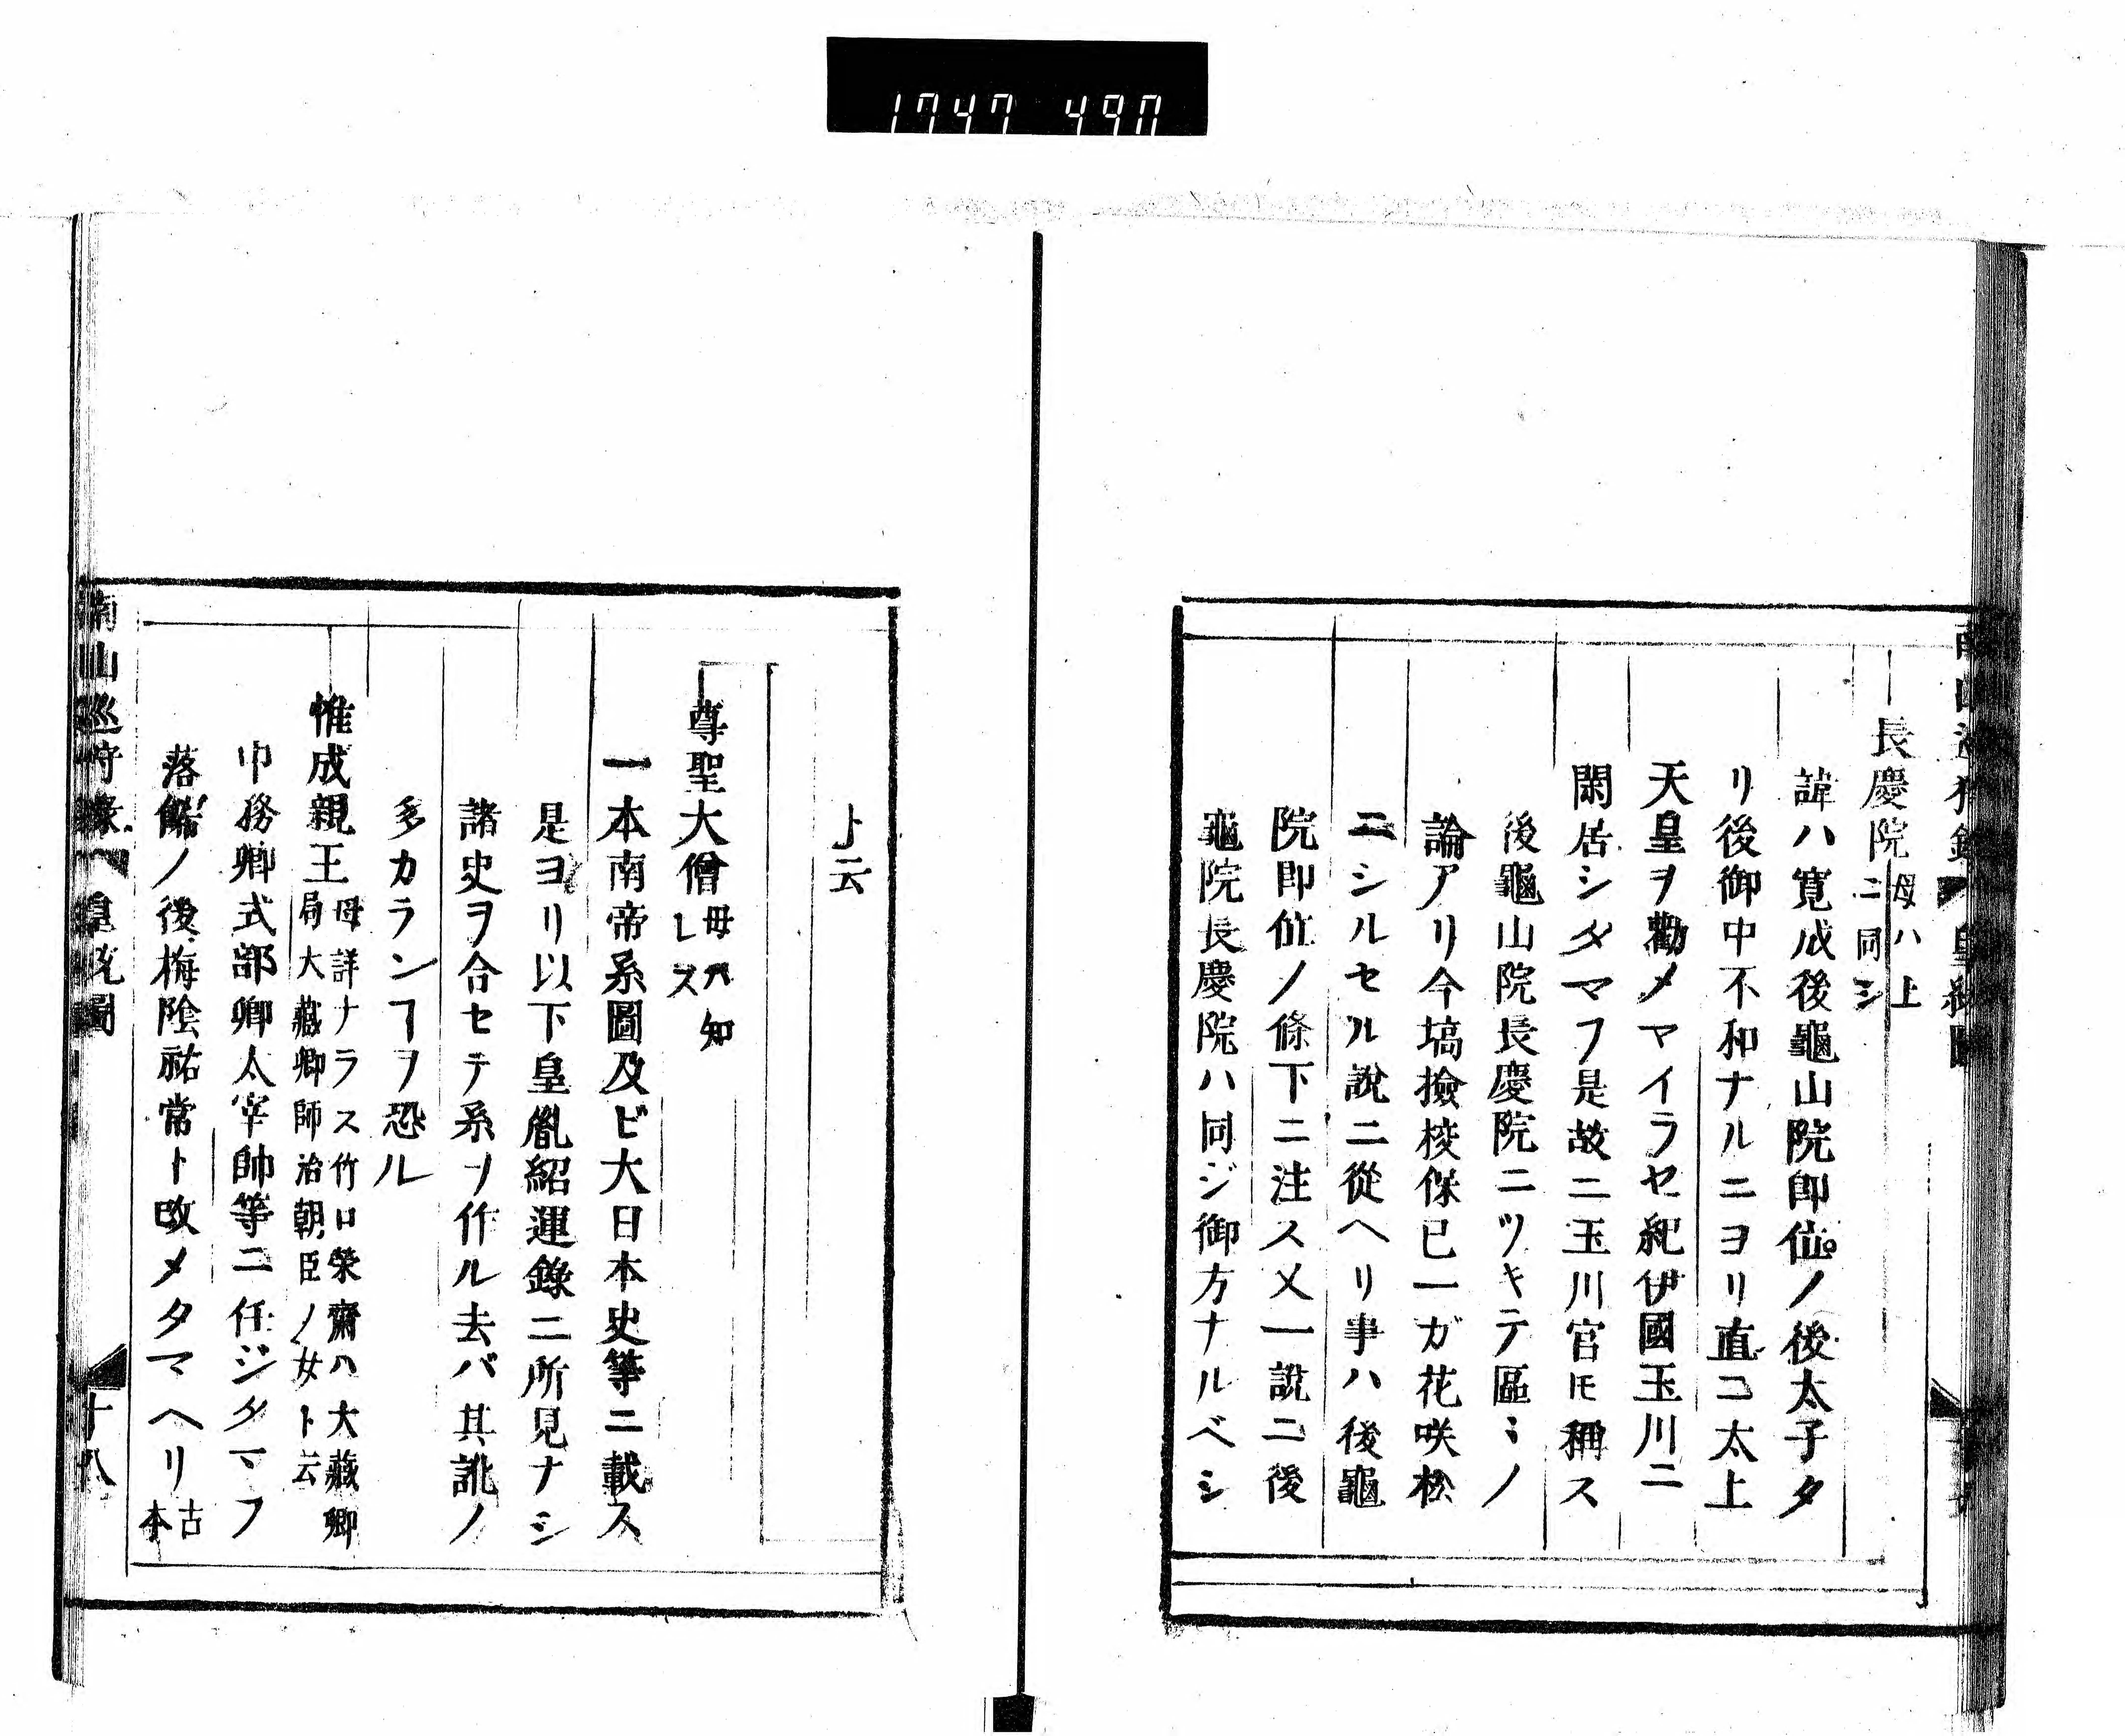 1747 490
長慶院母ハ上
ニ同シ
諱ハ寛成後龜山院即位ノ後太子タ
リ後御中不和ナルニヨリ直コ太上
天皇ヲ勸メマイラセ紀伊國玉川ニ
閑居シタマフ是故ニ玉川宮ㇳモ稱ス
後龜山院長慶院ニツキテ區ミノ
論アリ今塙撿校保已一ガ花咲松
ニシルセル說ニ從ヘリ事ハ後龜
院即位ノ條下ニ注ス又一說ニ後
龜院長慶院ハ同ジ御方ナルベシ
ト云
尊聖大僧母ハ知
レス
一本南帝系圖及ビ大日本史等ニ載ス
是ヨリ以下皇胤紹運錄ニ所見ナシ
諸史ヲ合セテ系ヲ作ル去バ其訛ノ
多カランヿヲ恐ル
惟成親王母詳ナラス竹口榮齋ハ大藏卿
局大藏卿師治朝臣ノ女ト云
中務卿式部卿太宰帥等ニ任ジタマフ
落餝ノ後梅隂祐常ト改メタマヘリ古
本
南山巡狩錄 皇統圖 十八